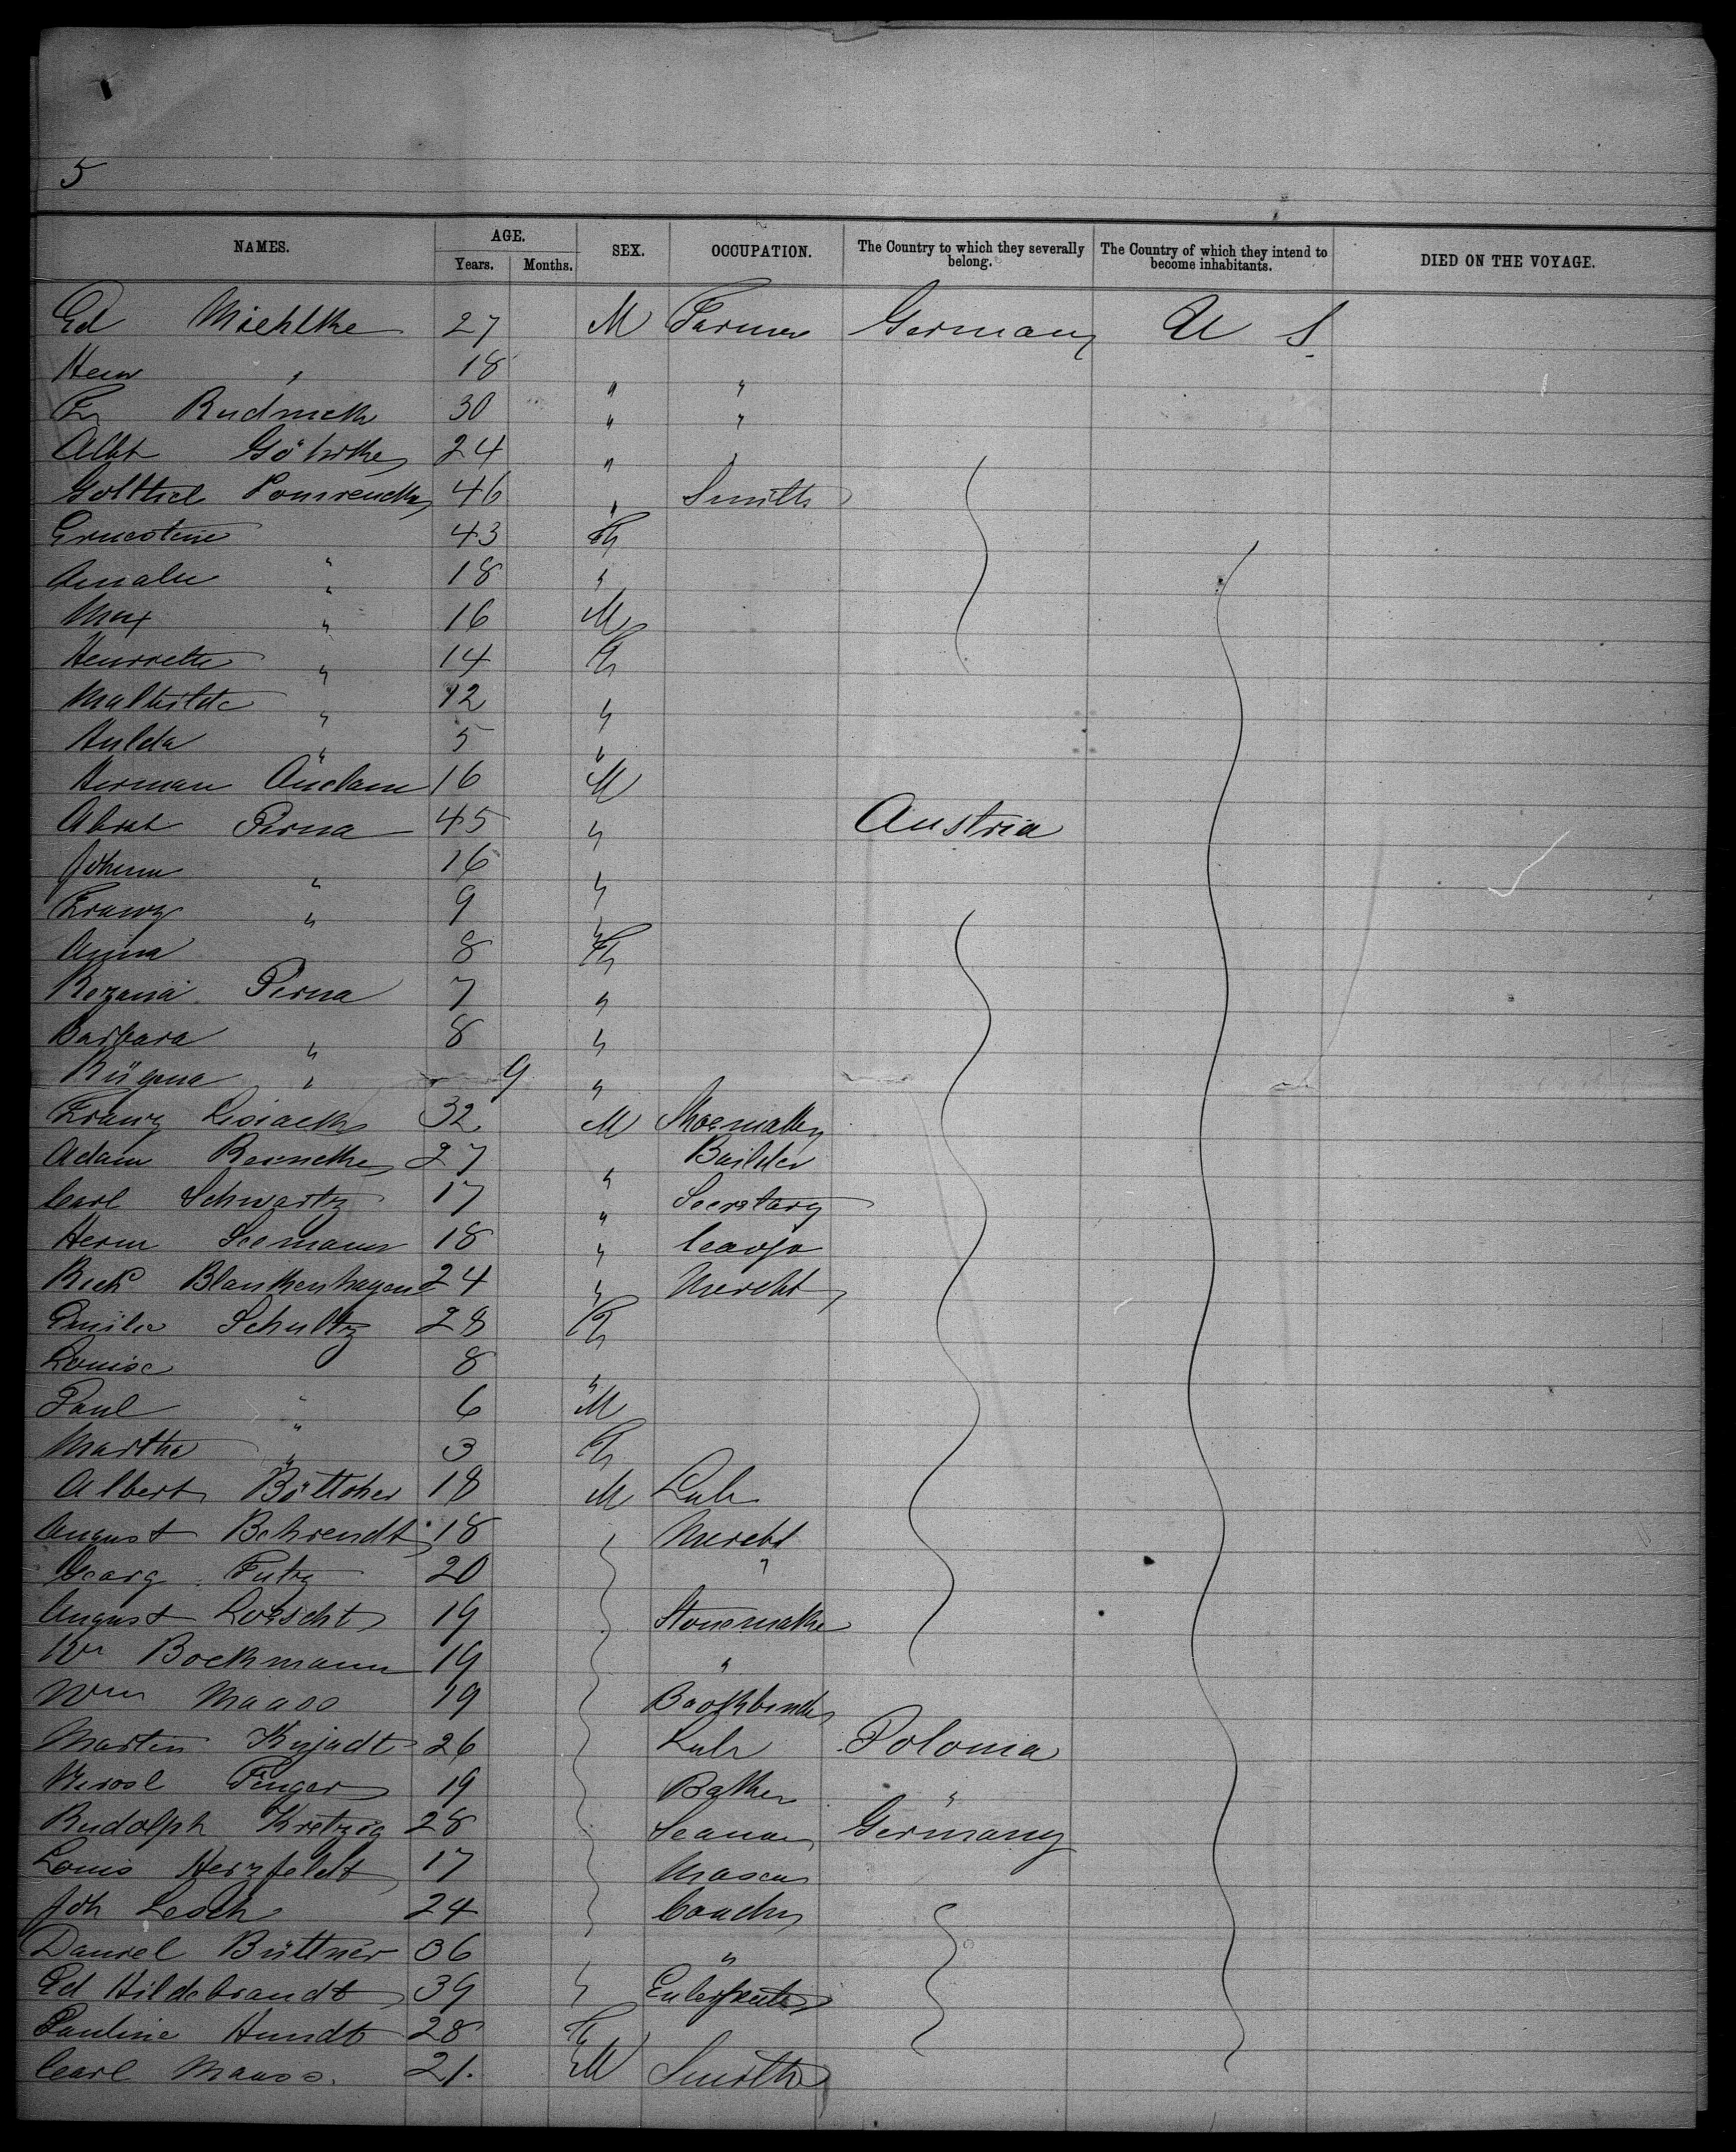 5
NAMES. AGE. SEX. OCCUPATION. The Country to which they severally belong. The Country of which they intend to become inhabitants. DIED ON THE VOYAGE.
Years. Months.
Ed Miehlke 27 M Farmer Germany U S
Herm " 18 " "
Fr 30 " "
Albt 24 " "
46 " Smith
Ernestine " 43 F
Amalie " 18 "
Max " 16 M
Henriette " 14 F
Mathilde " 12 "
Hulda " 5 "
Herman Anclam 16 M
Perna 45 " Austria
Johann " 16 "
Franz " 9 "
Anna 8 F
Perna 7 "
Barbara " 8 "
" 9 "
Franz 32 M Shoemaker
Adam 27 " Builder
Carl Schwartz 17 " Secretary
Herm Seemann 18 "
Rich Blankenhagen 24 " Mercht
Emilie Schultz 28 F
Louise " 8 "
Paul " 6 M
Martha " 3 F
Albert Böttcher 18 M Labr
August Behrendt 18 Mercht
Georg 20 "
August Loescht 19
Wm Boekmann 19 "
Wm Maass 19 Bookbinder
Martin Kujadt 26 Labr Polonia
Finger 19 Baker "
Rudolph Kretzig 28 Seaman Germany
Louis Herzfeldt 17 Mason
Joh Lesch 24
Daniel Büttner 36 "
Ed Hildebrandt 39 "
Pauline Hundt 28 F
Carl Maass. 21. M Smith